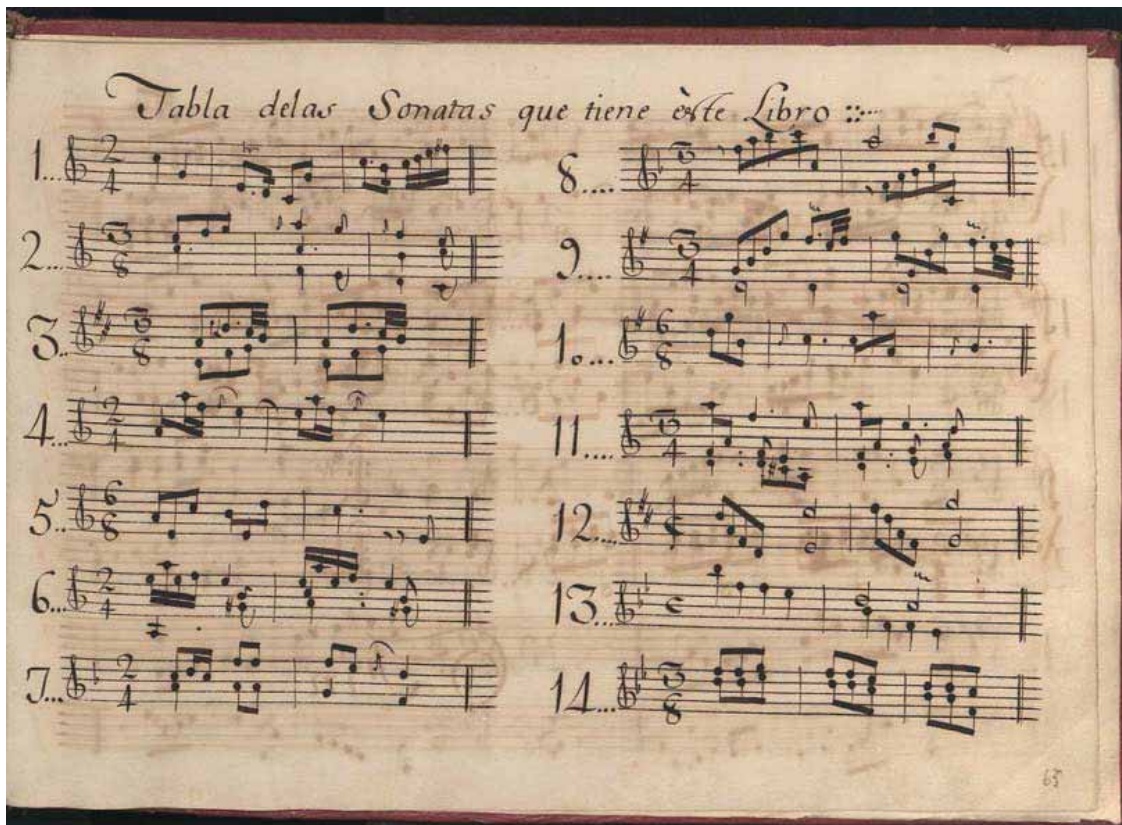 Tabla delas Sonatas que tiene èste Libro
1...
2...
3..
4...
5..
6...
7...
8....
9....
10...
11....
12....
13...
14...
65